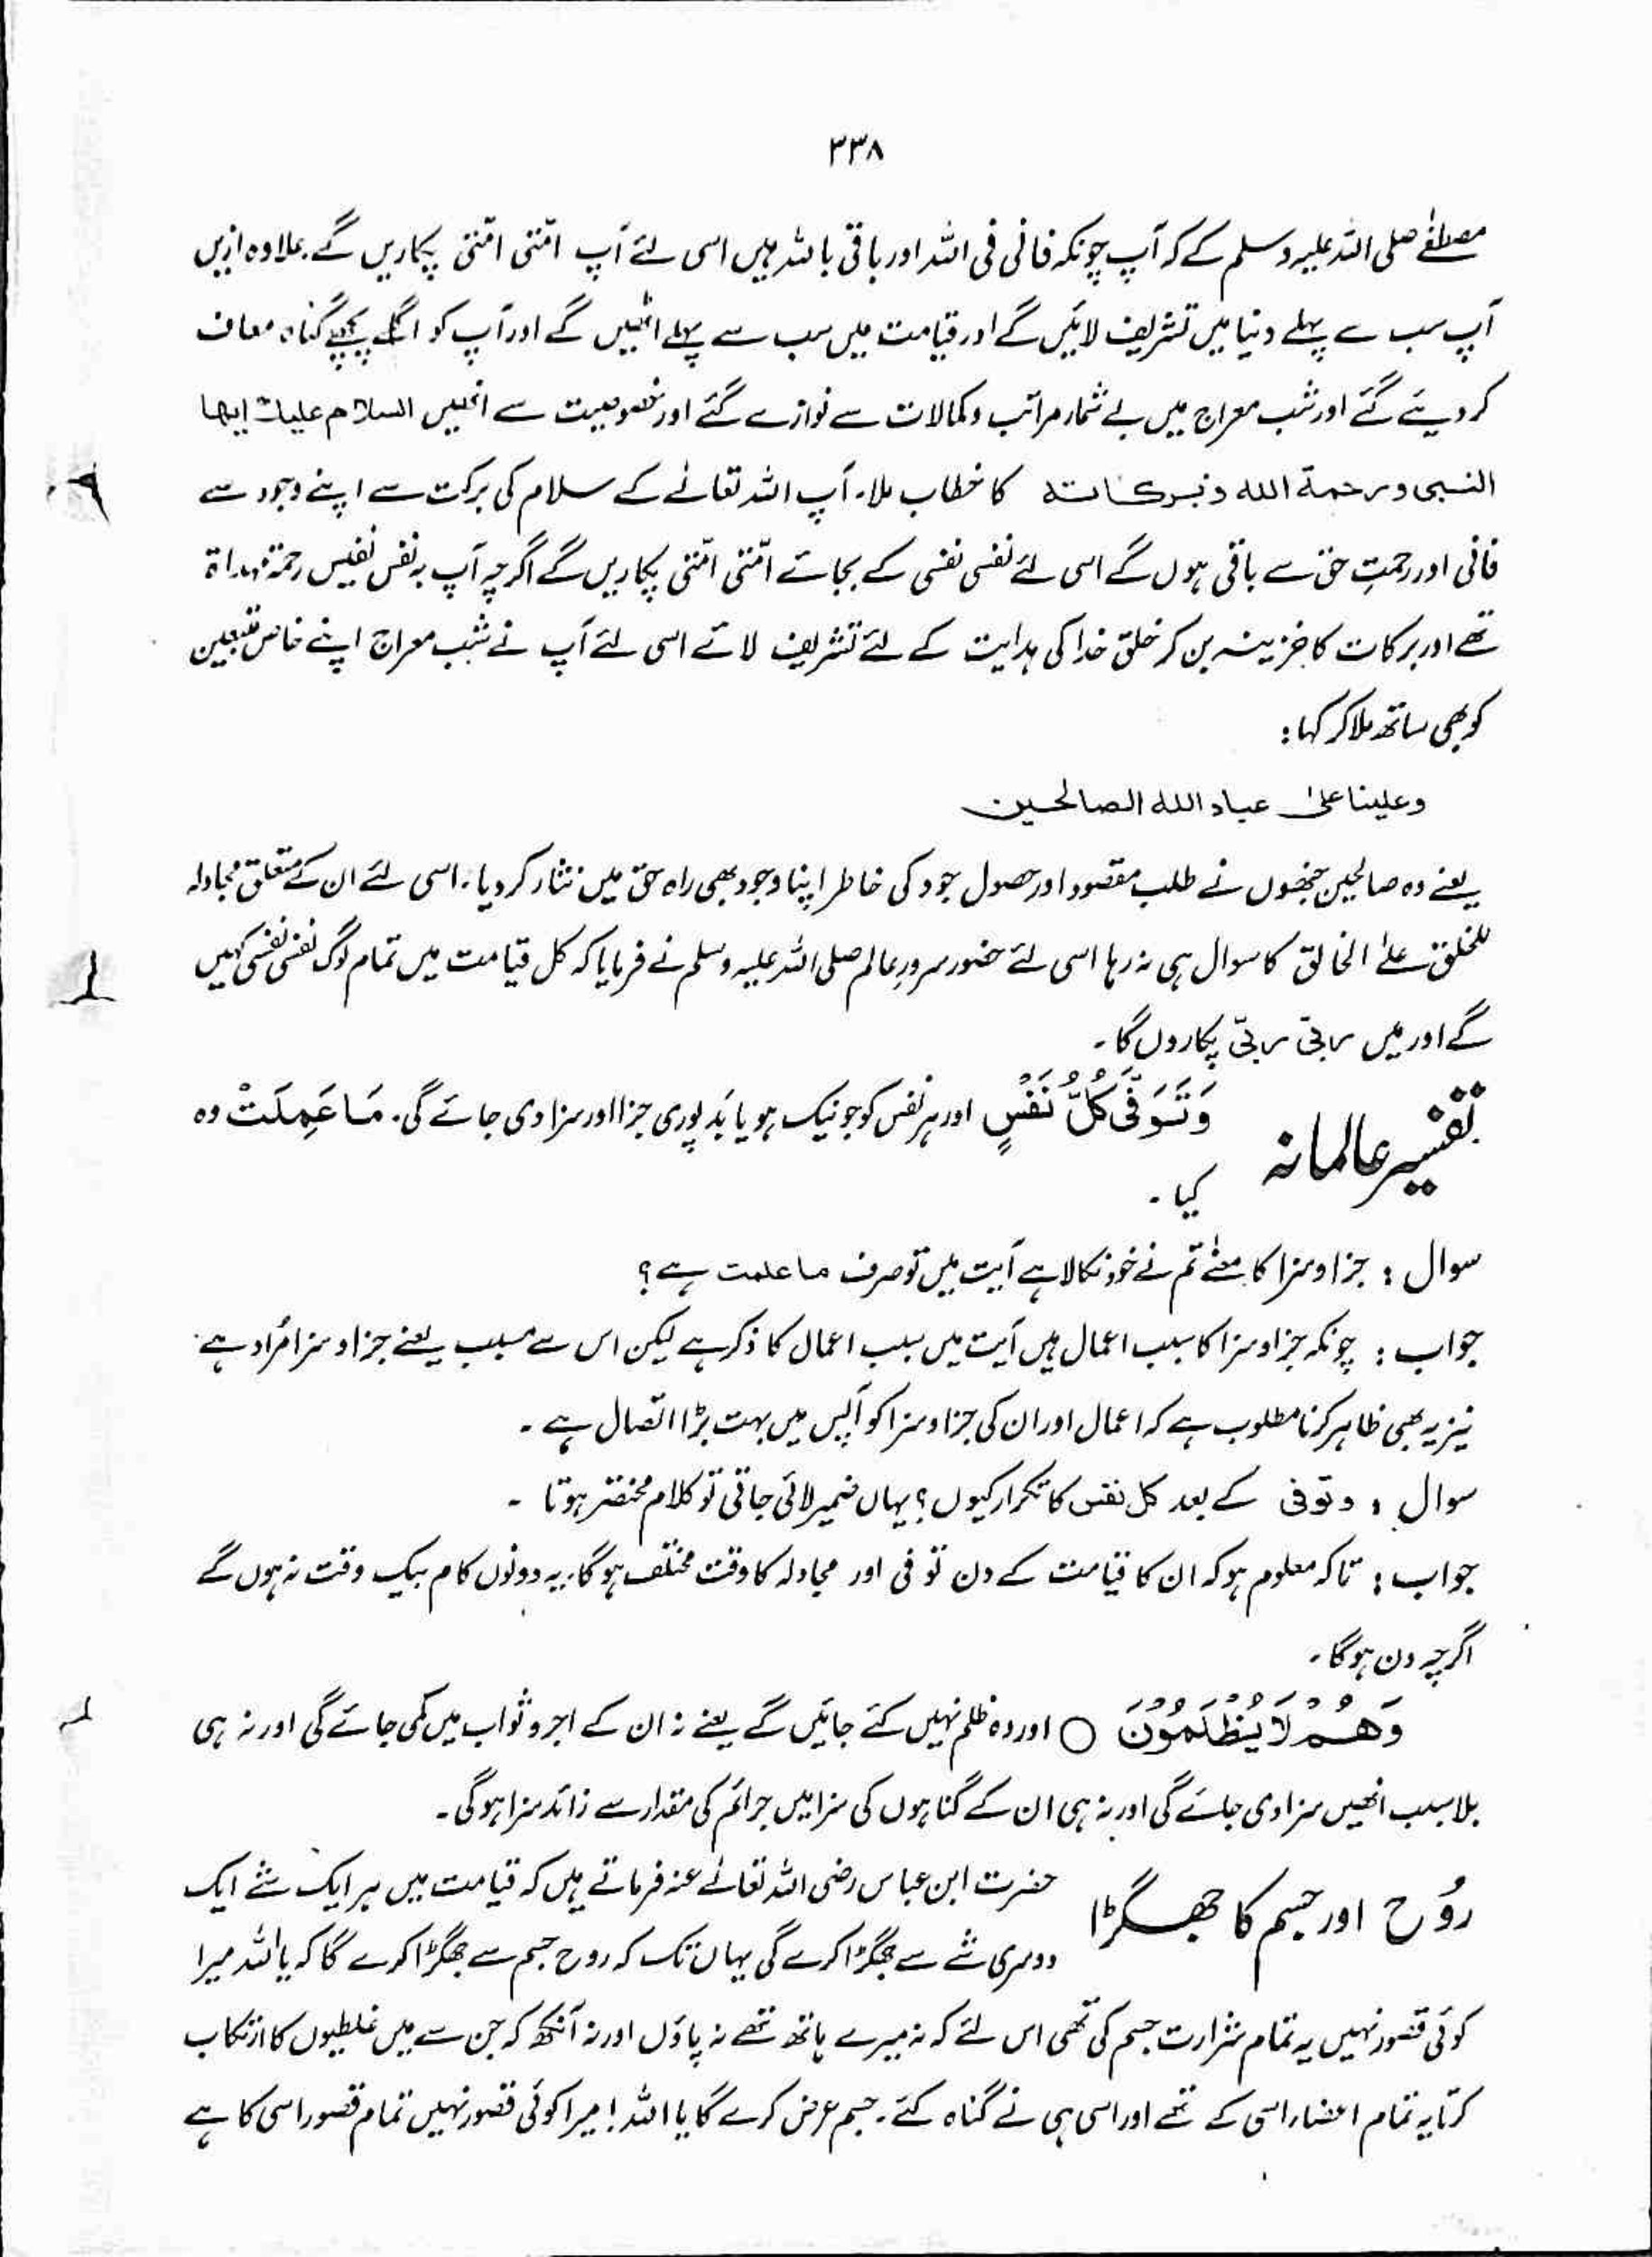 ۳۳۸
مصطفےٰ صلی اللہ علیہ وسلم کے کہ آپ چونکہ فانی فی اللہ اور باقی باللہ ہیں اسی لئے آپ امّتی امّتی پکاریں گے۔ علاوہ ازیں
آپ سب سے پہلے دنیا میں تشریف لائیں گے اور قیامت میں سب سے پہلے اٹھیں گے اور آپ کو اگلے پچھلے گناہ معاف
کر دیئے گئے اور شب معراج میں بے شمار مراتب و کمالات سے نوازے گئے اور خصوصیت سے انھیں السلام علیک ایھا
النبی ورحمة الله وبرکاتہ کا خطاب ملا۔ آپ اللہ تعالےٰ کے سلام کی برکت سے اپنے وجود سے
فانی اور رحمتِ حق سے باقی ہوں گے اسی لئے نفسی نفسی کے بجائے امّتی امّتی پکاریں گے اگرچہ آپ بہ نفس نفیس رحمۃ مہداۃ
تھے اور برکات کا خزینہ بن کر خلق خدا کی ہدایت کے لئے تشریف لائے اسی لئے آپ نے شب معراج اپنے خاص متبعین
کو بھی ساتھ ملا کر کہا :
وعلینا علیٰ عباد الله الصالحین
یعنے وہ صالحین جنھوں نے طلب مقصود اور حصول جود کی خاطر اپنا وجود بھی راہ حق میں نثار کر دیا۔ اسی لئے ان کے متعلق مجادلہ
للخلق علےٰ الخالق کا سوال ہی نہ رہا اسی لئے حضور سرورِ عالم صلی اللہ علیہ وسلم نے فرمایا کہ کل قیامت میں تمام لوگ نفسی نفسی کہیں
گے اور میں ربّی ربّی پکاروں گا۔
تفسیر عالمانہ
وَتُوَفّٰى كُلُّ نَفْسٍ اور ہر نفس کو جو نیک ہو یا بد پوری جزا اور سزا دی جائے گی۔ مَا عَمِلَتْ وہ
کیا۔
سوال : جزا و سزا کا معنےٰ تم نے خود نکالا ہے آیت میں تو صرف ما علمت ہے ؟
جواب : چونکہ جزا و سزا کا سبب اعمال ہیں آیت میں سبب اعمال کا ذکر ہے لیکن اس سے مسبب یعنے جزا و سزا مُراد ہے
نیز یہ بھی ظاہر کرنا مطلوب ہے کہ اعمال اور ان کی جزا و سزا کو آپس میں بہت بڑا اتّصال ہے۔
سوال : وتوفٰی کے بعد کل نفس کا تکرار کیوں ؟ یہاں ضمیر لائی جاتی تو کلام مختصر ہوتا۔
جواب : تاکہ معلوم ہو کہ ان کا قیامت کے دن توفی اور مجادلہ کا وقت مختلف ہوگا۔ یہ دونوں کام بیک وقت نہ ہوں گے
اگرچہ دن ہوگا۔
وَهُمْ لَا يُظْلَمُوْنَ ○ اور وہ ظلم نہیں کئے جائیں گے یعنے نہ ان کے اجر و ثواب میں کمی جائے گی اور نہ ہی
بلا سبب انھیں سزا دی جائے گی اور نہ ہی ان کے گناہوں کی سزا میں جرائم کی مقدار سے زائد سزا ہوگی۔
رُوح اور جسم کا جھگڑا
حضرت ابن عباس رضی اللہ تعالےٰ عنہ فرماتے ہیں کہ قیامت میں ہر ایک شے ایک
دوسری شے سے جھگڑا کرے گی یہاں تک کہ روح جسم سے جھگڑا کرے گا کہ یا اللہ میرا
کوئی قصور نہیں یہ تمام شرارت جسم کی تھی اس لئے کہ نہ میرے ہاتھ تھے نہ پاؤں اور نہ آنکھ کہ جن سے میں غلطیوں کا ارتکاب
کرتا یہ تمام اعضاء اسی کے تھے اور اسی ہی نے گناہ کئے۔ جسم عرض کرے گا یا اللہ ! میرا کوئی قصور نہیں تمام قصور اسی کا ہے